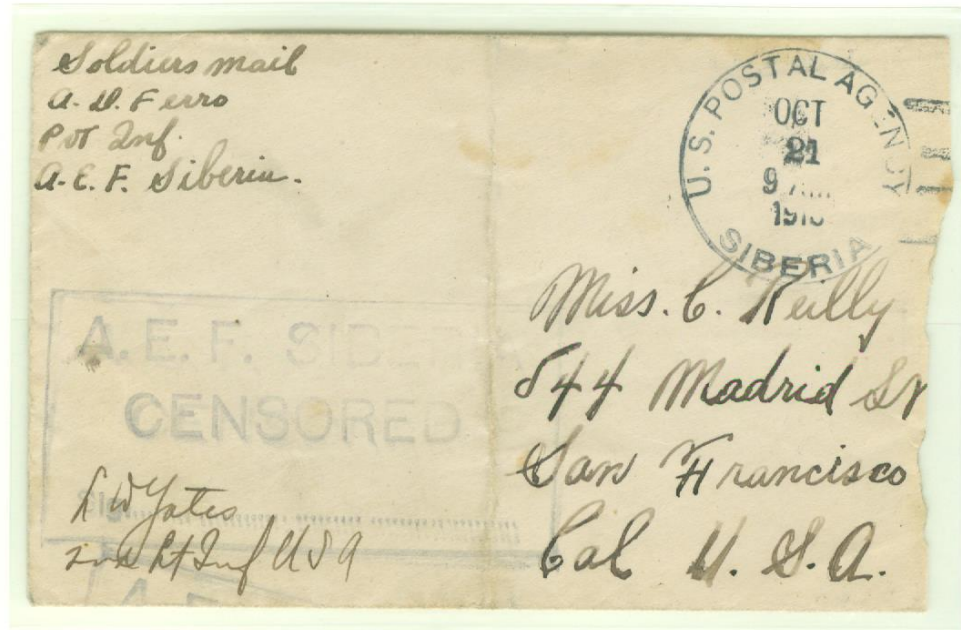 Soldiers mail
A. D. Ferro
Pvt Inf.
A.E.F. Siberia.
U.S. POSTAL AGENCY
OCT
21
9
SIBERIA
A.E.F. SIBERIA
CENSORED
Yates
Lt Inf USA
Miss. C. Reilly
844 Madrid St
San Francisco
Cal U.S.A.
A.E.F.